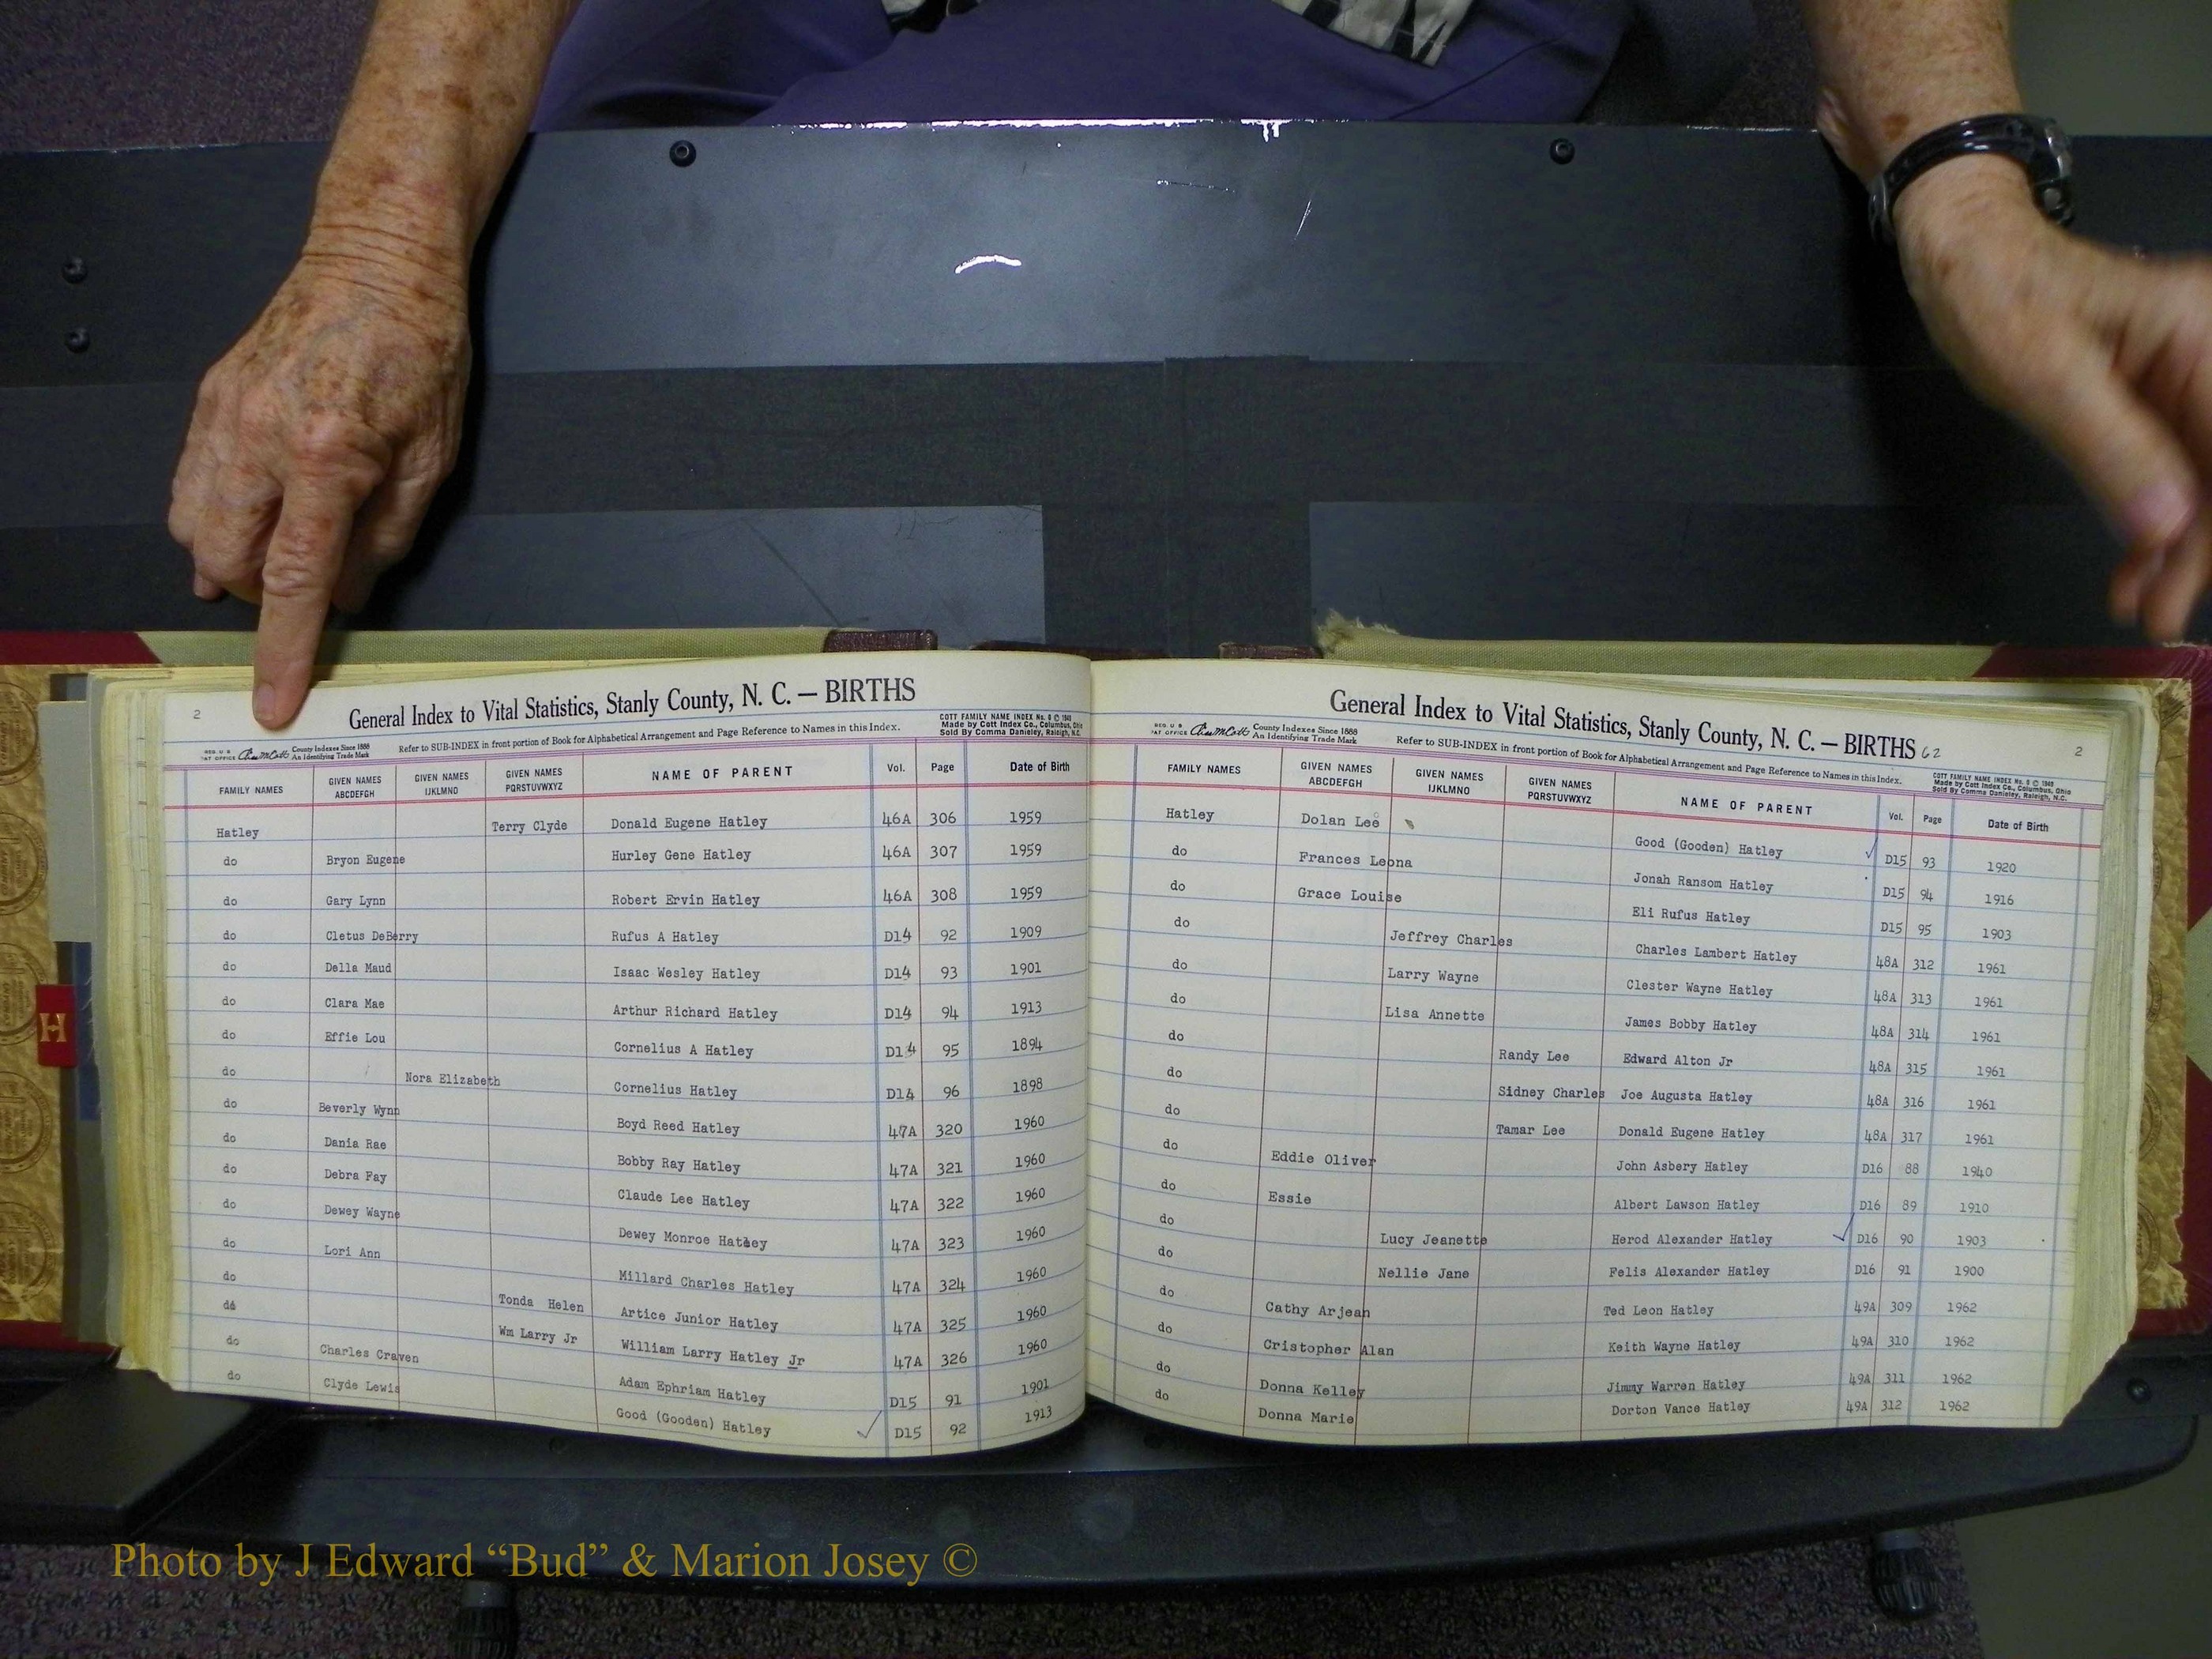 2
General Index to Vital Statistics, Stanly County, N. C. — BIRTHS
COTT FAMILY NAME INDEX No. 6 © 1940
Made by Cott Index Co., Columbus, Ohio
Sold By Comma Danieley, Raleigh, N.C.
County Indexes Since 1888
An Identifying Trade Mark
Refer to SUB-INDEX in front portion of Book for Alphabetical Arrangement and Page Reference to Names in this Index.
FAMILY NAMES GIVEN NAMES ABCDEFGH GIVEN NAMES IJKLMNO GIVEN NAMES PQRSTUVWXYZ NAME OF PARENT Vol. Page Date of Birth
Hatley Terry Clyde Donald Eugene Hatley 46A 306 1959
do Bryon Eugene Hurley Gene Hatley 46A 307 1959
do Gary Lynn Robert Ervin Hatley 46A 308 1959
do Cletus DeBerry Rufus A Hatley D14 92 1909
do Della Maud Isaac Wesley Hatley D14 93 1901
do Clara Mae Arthur Richard Hatley D14 94 1913
do Effie Lou Cornelius A Hatley D14 95 1894
do Nora Elizabeth Cornelius Hatley D14 96 1898
do Beverly Wynn Boyd Reed Hatley 47A 320 1960
do Dania Rae Bobby Ray Hatley 47A 321 1960
do Debra Fay Claude Lee Hatley 47A 322 1960
do Dewey Wayne Dewey Monroe Hatley 47A 323 1960
do Lori Ann Millard Charles Hatley 47A 324 1960
do Tonda Helen Artice Junior Hatley 47A 325 1960
do Wm Larry Jr William Larry Hatley Jr 47A 326 1960
do Charles Craven Adam Ephriam Hatley D15 91 1901
do Clyde Lewis Good (Gooden) Hatley D15 92 1913
General Index to Vital Statistics, Stanly County, N. C. — BIRTHS 62
2
REG. U S
PAT OFFICE
County Indexes Since 1888
An Identifying Trade Mark
Refer to SUB-INDEX in front portion of Book for Alphabetical Arrangement and Page Reference to Names in this Index.
COTT FAMILY NAME INDEX No. 6 © 1940
Made by Cott Index Co., Columbus, Ohio
Sold By Comma Danieley, Raleigh, N.C.
FAMILY NAMES GIVEN NAMES ABCDEFGH GIVEN NAMES IJKLMNO GIVEN NAMES PQRSTUVWXYZ NAME OF PARENT Vol. Page Date of Birth
Hatley Dolan Lee Good (Gooden) Hatley D15 93 1920
do Frances Leona Jonah Ransom Hatley D15 94 1916
do Grace Louise Eli Rufus Hatley D15 95 1903
do Jeffrey Charles Charles Lambert Hatley 48A 312 1961
do Larry Wayne Clester Wayne Hatley 48A 313 1961
do Lisa Annette James Bobby Hatley 48A 314 1961
do Randy Lee Edward Alton Jr 48A 315 1961
do Sidney Charles Joe Augusta Hatley 48A 316 1961
do Tamar Lee Donald Eugene Hatley 48A 317 1961
do Eddie Oliver John Asbery Hatley D16 88 1940
do Essie Albert Lawson Hatley D16 89 1910
do Lucy Jeanette Herod Alexander Hatley D16 90 1903
do Nellie Jane Felis Alexander Hatley D16 91 1900
do Cathy Arjean Ted Leon Hatley 49A 309 1962
do Cristopher Alan Keith Wayne Hatley 49A 310 1962
do Donna Kelley Jimmy Warren Hatley 49A 311 1962
do Donna Marie Dorton Vance Hatley 49A 312 1962
H
Photo by J Edward “Bud” & Marion Josey ©